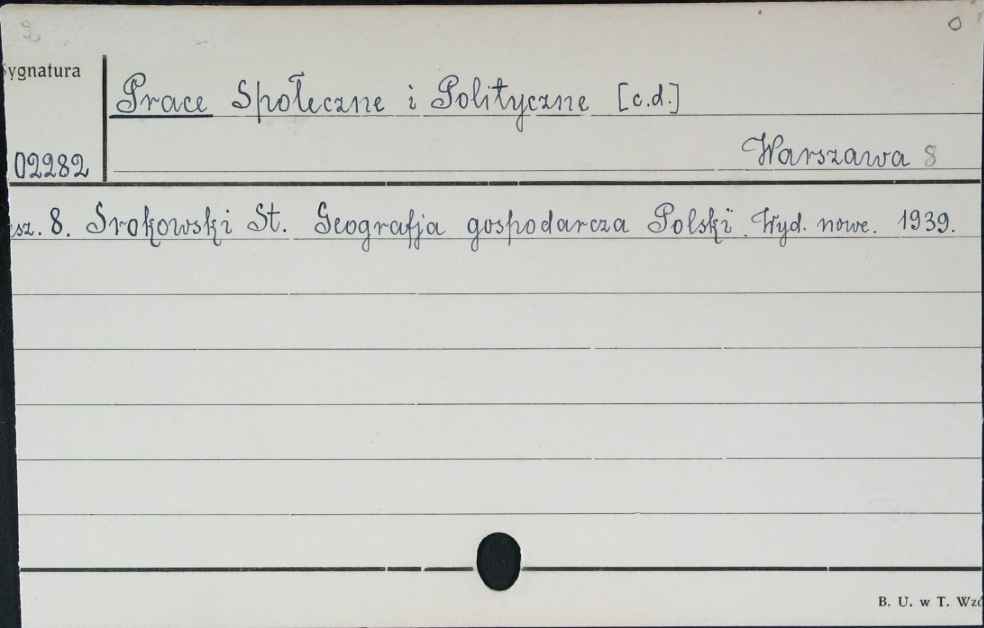 Sygnatura
Prace Społeczne i Polityczne [c.d.]
Warszawa 8
02282
sz. 8. Srokowski St. Geografja gospodarcza Polski. Wyd. nowe. 1939.
B. U. w T. Wzó